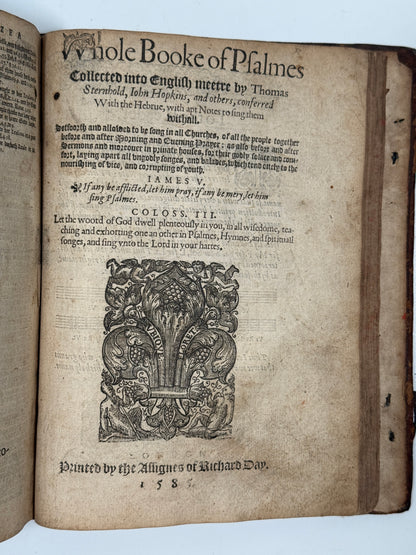 Whole Booke of Psalmes
Collected into English meetre by Thomas
Sternhold, Iohn Hopkins, and others, conferred
With the Hebrue, with apt Notes to sing them
withall.
Setforth and allowed to be song in all Churches, of all the people together
before and after Morning and Euening Prayer: as also before and after
Sermons and moreouer in priuate houses, for their godly solace and com-
fort, laying apart all vngodly songes, and balades, which tend onely to the
nourishing of vice, and corrupting of youth.
IAMES V.
If any be afflicted, let him pray, if any be mery, let him
sing Psalmes.
COLOSS. III.
Let the woord of God dwell plenteously in you, in all wisedome, tea-
ching and exhorting one an other in Psalmes, Hymnes, and spirituall
songes, and sing vnto the Lord in your hartes.
Printed by the Assignes of Richard Day.
158